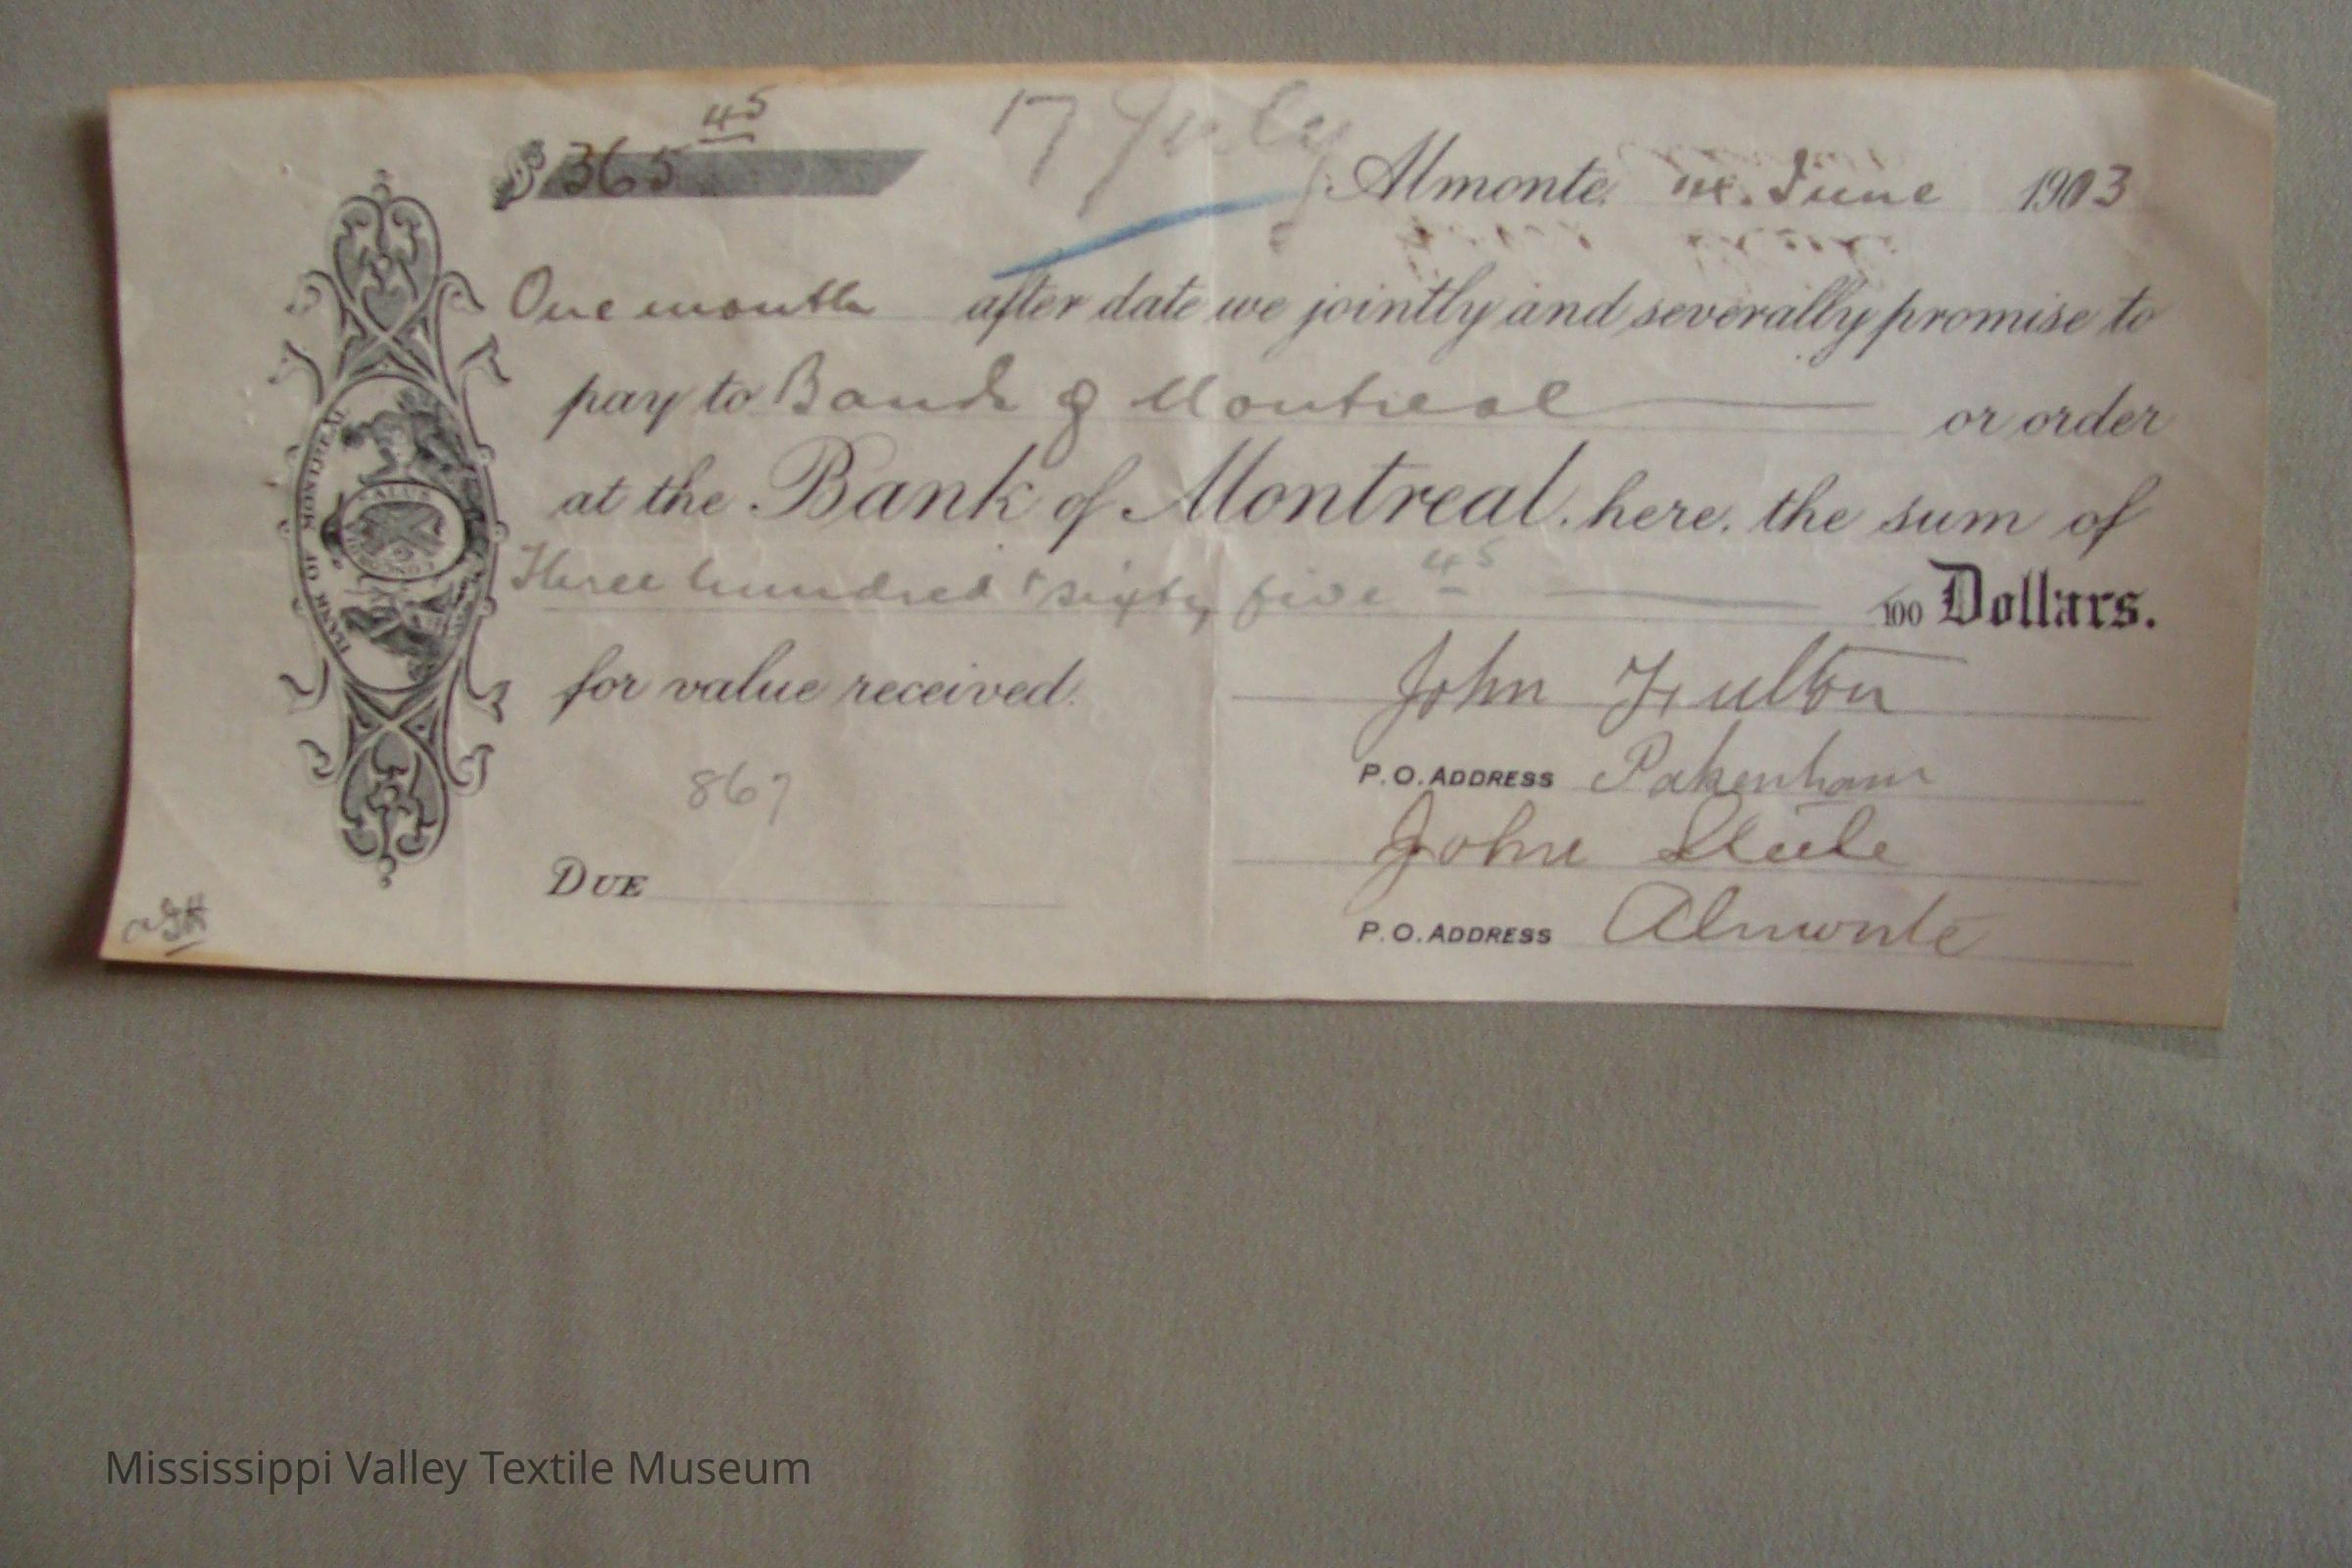 $ 365 45
17 July
Almonte, 14. June 1903
One month after date we jointly and severally promise to
pay to Bank of Montreal or order
at the Bank of Montreal, here, the sum of
Three hundred & sixty five 45 /100 Dollars.
for value received.
John Fulton
P.O. ADDRESS Pakenham
867
John Steele
DUE
P.O. ADDRESS Almonte
BANK OF MONTREAL
SALUS
Mississippi Valley Textile Museum